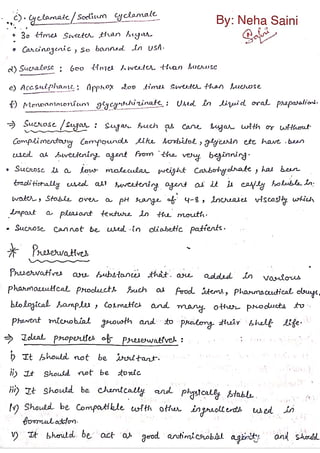 c). Cyclamate / Sodium cyclamate
By: Neha Saini
Saini
• 30 times sweeter than sugar.
• Carcinogenic, so banned in USA.
d) Sucralose : 600 times sweeter than sucrose
e) Acesulphame : Approx 200 times sweeter than sucrose
f) Monoammonium glycyrrhizinate : Used in liquid oral preparation.
⇒ Sucrose/Sugar : Sugar such as cane sugar with or without
Complimentary Compounds like sorbitol, glycerin etc have been
used as sweetening agent from the very beginning.
• Sucrose is a low molecular weight Carbohydrate, has been
traditionally used as sweetening agent as it is easily soluble in
water, stable over a pH range of 4-8, increases viscosity which
impart a pleasant texture in the mouth.
• Sucrose cannot be used in diabetic patients.
* Preservatives
Preservatives are substances that are added in various
pharmaceutical products such as food items, pharmaceutical drugs,
biological samples, cosmetics and many other products to
prevent microbial growth and to prolong their shelf life.
⇒ Ideal properties of preservatives :
i) It should not be irritant.
ii) It should not be toxic
iii) It should be chemically and physically stable.
iv) Should be Compatible with other ingredients used in
formulation.
v) It should be act as good antimicrobial agent and should